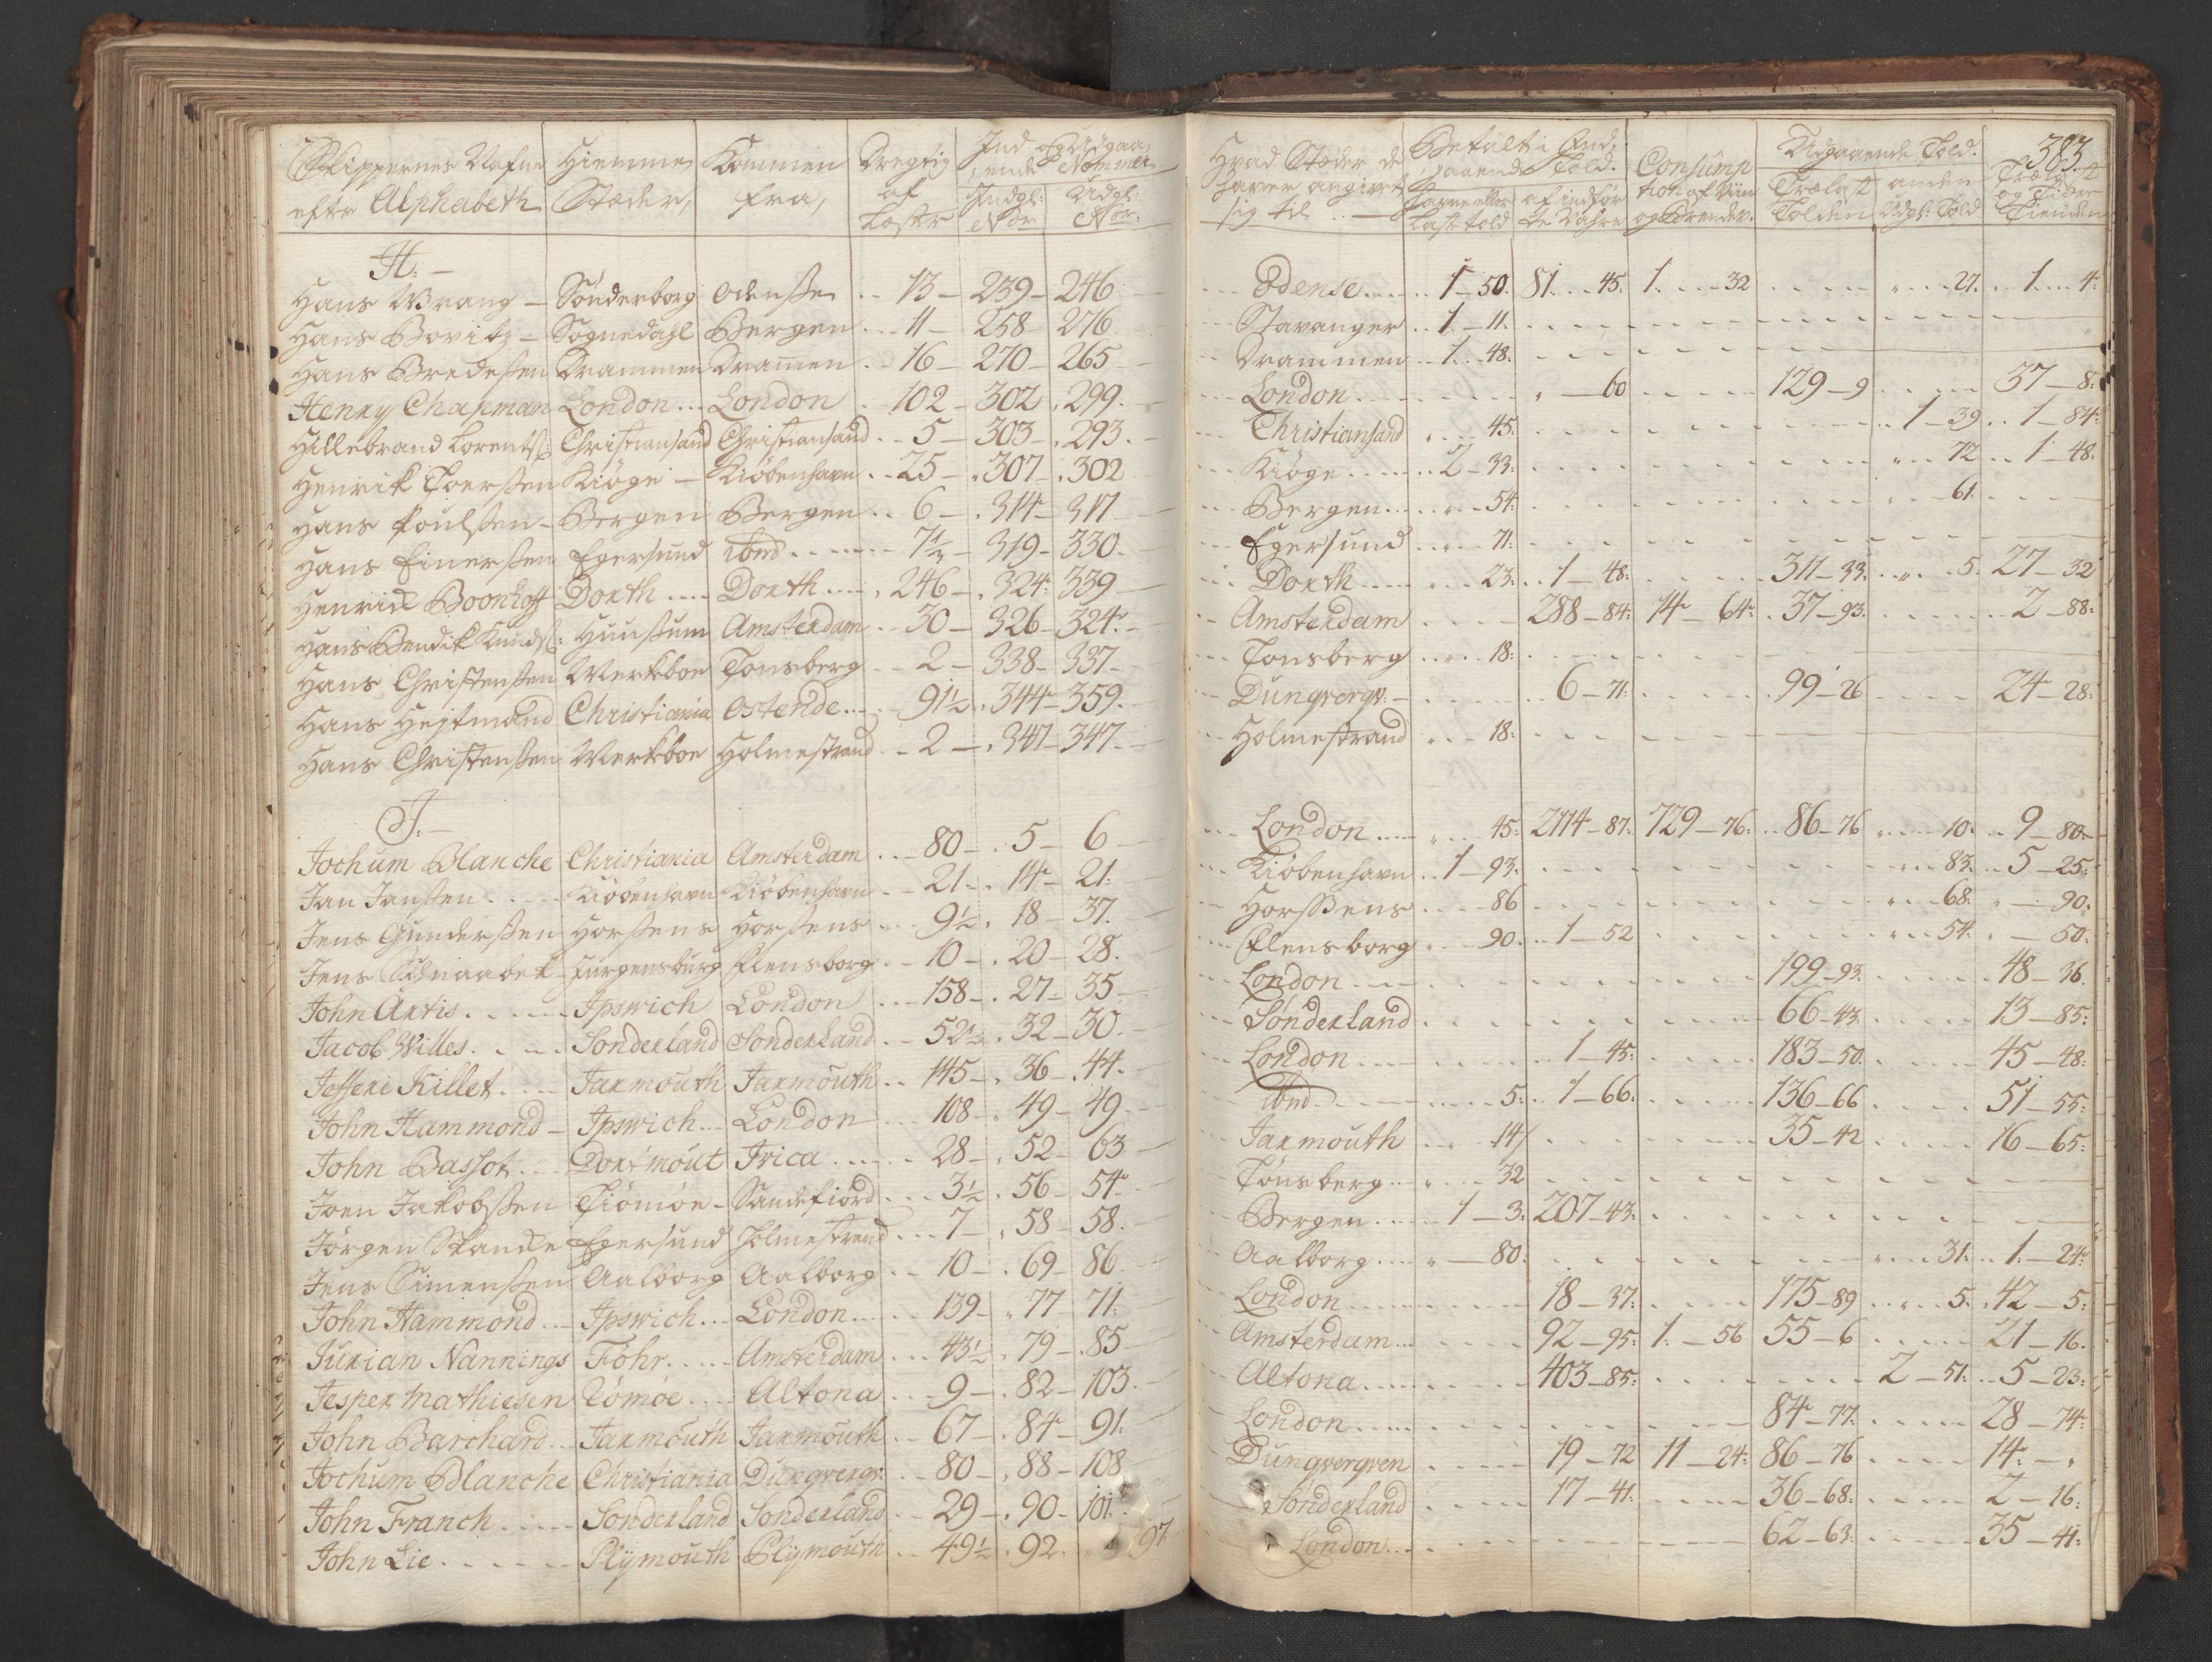 Skippernes Nafne Hiemme Kommen Dregtig Ind og Udgaa,
efter Alphabeth Stæder, fra, af Læster ende Nommer
Indgl: No: Udgl: No:
H. -
Hans Wrang - Sønderborg Odensse .. 13 - 239 - 246
Hans Bovitz - Sognedahl Bergen .. 11 - 258 - 276
Hans Bredessen Drammen Dramen .. 16 - 270 - 265
Henry Chapman London ... London .. 102 - 302 . 299.
Hillebrand Lorentz: Christiansand Christiansand .. 5 - 303 - 293.
Henrik Toerssen Kiøge - Kiöbenhavn .. 25 - 307 - 302
Hans Poulssen - Bergen Bergen .. 6 - 314 - 317
Hans Einerssen Egersund ibmd .... 7½ - 319 - 330.
Henrick Boonhoff Dorth .... Dorth .... 246 - 324: 339
Hans Bendik Knuds: Huussum Amsterdam .. 30 - 326 - 324.
Hans Christenssen Werkboe Tonsberg .. 2 - 338 - 337.
Hans Hejtmand Christiania Ostende ... 91½ . 344 - 359.
Hans Christenssen Werkboe Holmestrand .. 2 - 347 - 347.
J. -
Jochum Blanche Christiania Amsterdam ... 80 - 5 - 6
Jan Janssen .... Kiöbenhavn Kiöbenhavn .. 21 - 14 - 21.
Jens Gunderssen Horssens Horssens .. 9½ . 18 - 37.
Jens Schnaabel Jürgensburg Flensborg .. 10 - 20 - 28.
John Artis ..... Ipswich London ... 158 - 27 - 35
Jacob Willes .... Sonderland Sonderland .. 52½ . 32 - 30.
Jefferi Killet .... Jarmouth Jarmouth .. 145 - 36 - 44.
John Hammond - Ipswich ... London ... 108 - 49 - 49.
John Bassot ... Dortmout Irica .... 28 - 52 - 63
Joen Jakobssen Tiömöe - Sandefiord .. 3½ . 56 - 54
Jörgen Skancke Egersund Holmestrand ... 7 - 58 - 58.
Jens Simenssen Aalborg Aalborg .. 10 - 69 - 86.
John Hammond ... Ipswich ... London ... 139 - 77 - 71.
Jurian Nannings Föhr ..... Amsterdam ... 43½ . 79 - 85
Jesper Mathiesen Römöe .... Altona ... 9 - 82 - 103.
John Barchard .. Jarmouth Jarmouth .. 67 - 84 - 91.
Jochum Blanche Christiania Dunqvergv: .. 80 - 88 - 108
John Franch ..... Sonderland Sonderland .. 29 - 90 - 101.
John Lie ...... Plÿmouth Plÿmouth .. 49½ . 92. 97
383.
Hvad Stæder de Betalt i Ind, Consump Udgaaende Told. Trælast
haver angivet gaaende Told. tion af Viin Trælast anden og Tiære
sig til .. Lastetold af indför te Vahre og Brendev. Tolden Udgl: Told Tienden
Odense .... 1 - 50. 81. .. 45. 1. .... 32 27. .. 1. ... 4.
Stavanger .. 1. - 11.
Drammen .. 1. .. 48.
London ...... - 60 ..... 129 - 9 ..... 37 - 8.
Christiansand .... 45. .. 1 - 39 .. 1 - 84.
Kiöge ..... 2 - 33. .. 72 .. 1 - 48.
Bergen ...... 54. .. 61.
Egersund .... 71.
Dorth ..... 23. .. 1 - 48. .... 311 - 33. .. 5. 27 - 32
Amsterdam .... 288 - 84. 14 - 64. . 37 - 93. ..... 2 - 88.
Tonsberg .... 18.
Dunqvergv. - .... 6 - 71. .... 99 - 26 ..... 24 - 28.
Holmestrand ... 18.
London .... 45. 2114 - 87. 729 - 76. .. 86 - 76 .... 10. .. 9 - 80.
Kiöbenhavn .. 1 - 93. .... 83. .. 5 - 25.
Horssens .... 86 ... 68. - 90.
Flensborg ... 90. .. 1 - 52 ... 54. - 50.
London ...... 199 - 93. ..... 48 - 36
Sönderland ..... 66 - 43 ..... 13 - 85.
London ..... 1 - 45. .... 183 - 50. .... 45 - 48.
Ibmd ....... 5. .. 1 - 66. .... 136 - 66 .... 51 - 55.
Jarmouth ... 14 .... 35 - 42 .... 16 - 65.
Tönsberg ... 32
Bergen ..... 1 - 3. 207 - 43.
Aalborg .... - 80. ... 31. .. 1. - 24
London ...... 18 - 37. .... 175 - 89 .... 5. . 42 - 5.
Amsterdam ... 92 - 95. 1. - 56 55 - 6 ..... 21 - 16.
Altona ...... 403 - 85. ...... 2 - 51. .. 5 - 23.
London ..... 84 - 77. ..... 28 - 74.
Dunqvergven .... 19 - 72 11 - 24. 86 - 76 .... 14. -
Sonderland .... 17 - 41. .... 36 - 68. .... 2 - 16.
London ... 62 - 63. ..... 35 - 41.